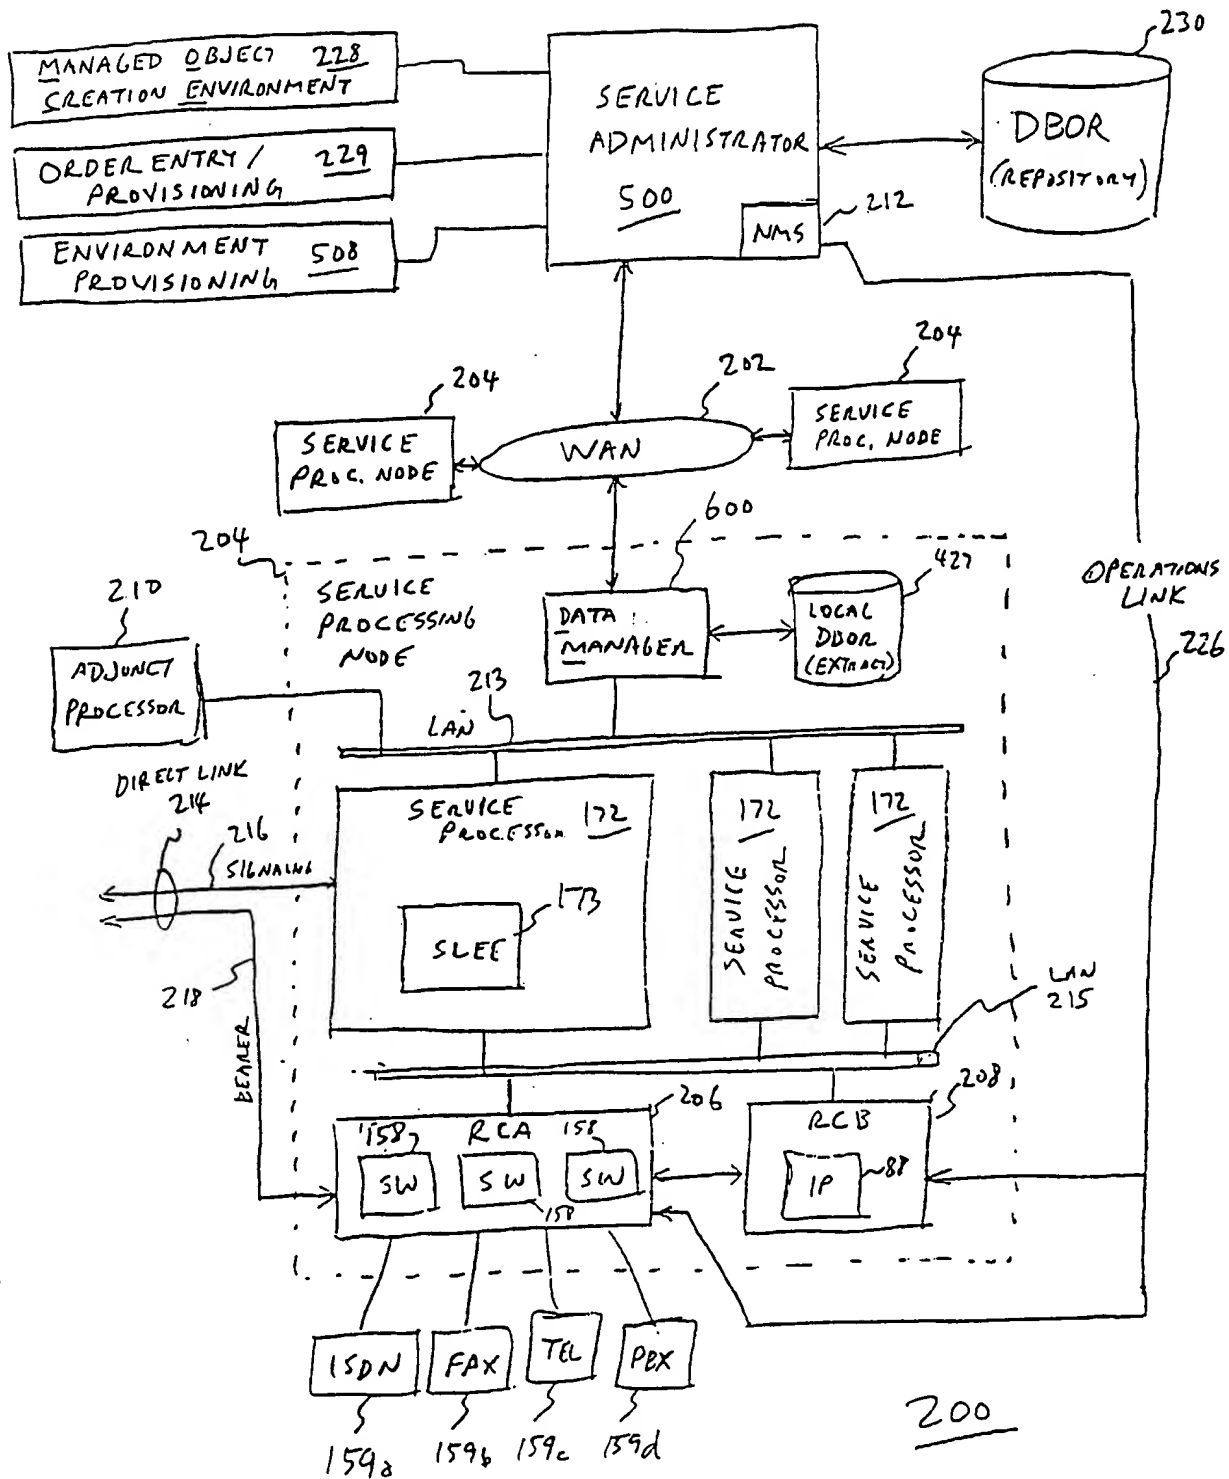 MANAGED OBJECT 228
CREATION ENVIRONMENT
ORDER ENTRY / 229
PROVISIONING
ENVIRONMENT 508
PROVISIONING
SERVICE
ADMINISTRATOR
500
NMS
212
230
DBOR
(REPOSITORY)
204
SERVICE
PROC. NODE
202
WAN
204
SERVICE
PROC. NODE
600
204
SERVICE
PROCESSING
NODE
DATA
MANAGER
427
LOCAL
DBOR
(EXTRACT)
OPERATIONS
LINK
226
210
ADJUNCT
PROCESSOR
LAN
213
DIRECT LINK
214
216
SIGNALING
SERVICE
PROCESSOR 172
SLEE
173
172
SERVICE
PROCESSOR
172
SERVICE
PROCESSOR
218
BEARER
LAN
215
206
RCA
158
SW
SW
158
158
SW
208
RCB
IP
88
ISDN
FAX
TEL
PBX
159a
159b
159c
159d
200